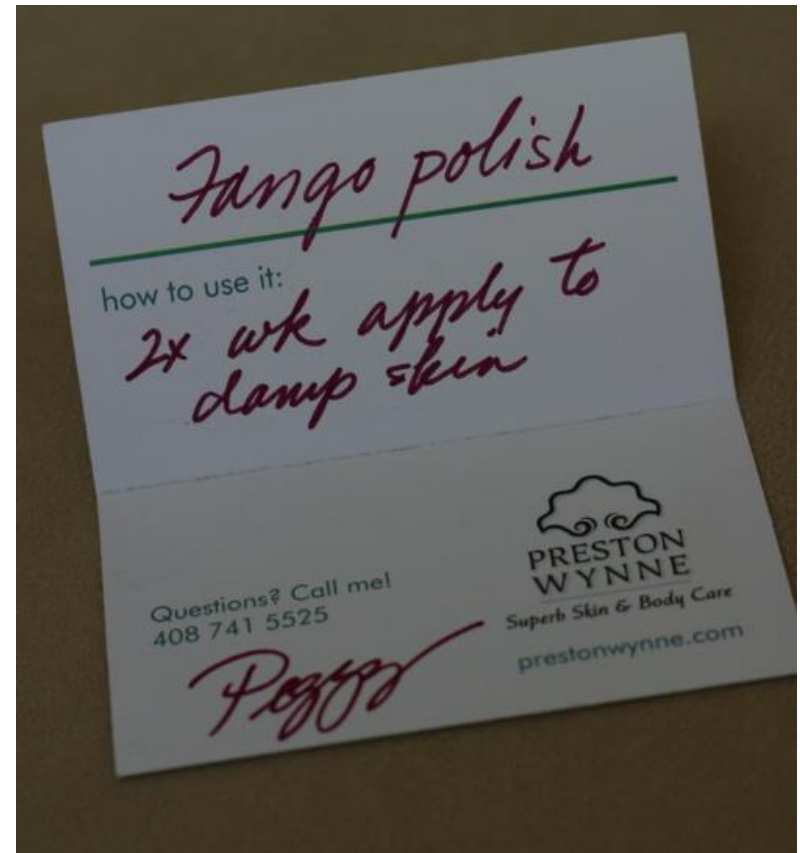 Fango polish
how to use it:
2x wk apply to
damp skin
Questions? Call me!
408 741 5525
Peggy
PRESTON
WYNNE
Superb Skin & Body Care
prestonwynne.com